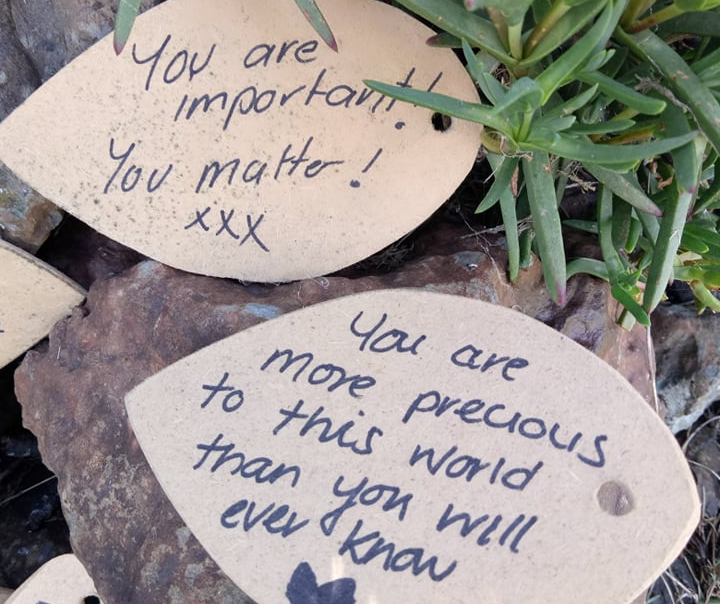 You are
important!
You matter!
xxx
You are
more precious
to this world
than you will
ever know